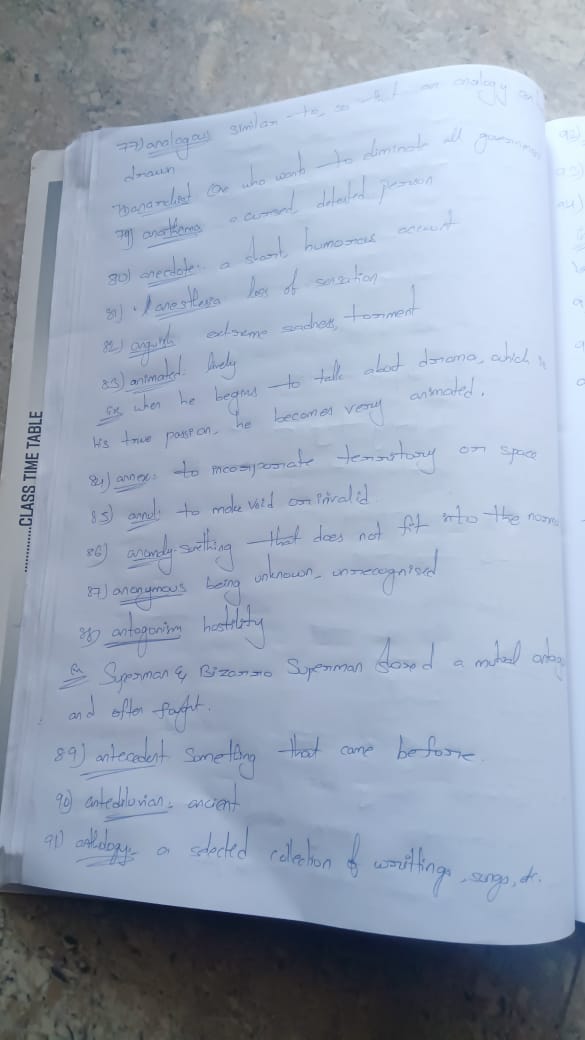 77) analogous similar to, so that an analogy can
drawn
78) anarchist One who wants to eliminate all government
79) anathema a cursed, detested person
80) anecdote: a short humorous account
81) anesthesia loss of sensation
82) anguish extreme sadness, torment
83) animated: lively
Ex when he begins to talk about drama, which is
his true passion, he becomes very animated.
84) annex: to incorporate territory or space
85) annul: to make void or invalid
86) anomaly: something that does not fit into the norm
87) anonymous being unknown, unrecognised
88) antagonism hostility
Ex Superman & Bizarro Superman shared a mutual antag
and often fought.
89) antecedent something that came before.
90) antediluvian: ancient
91) anthology: a selected collection of writtings, songs, etc.
CLASS TIME TABLE
92)
93)
94)